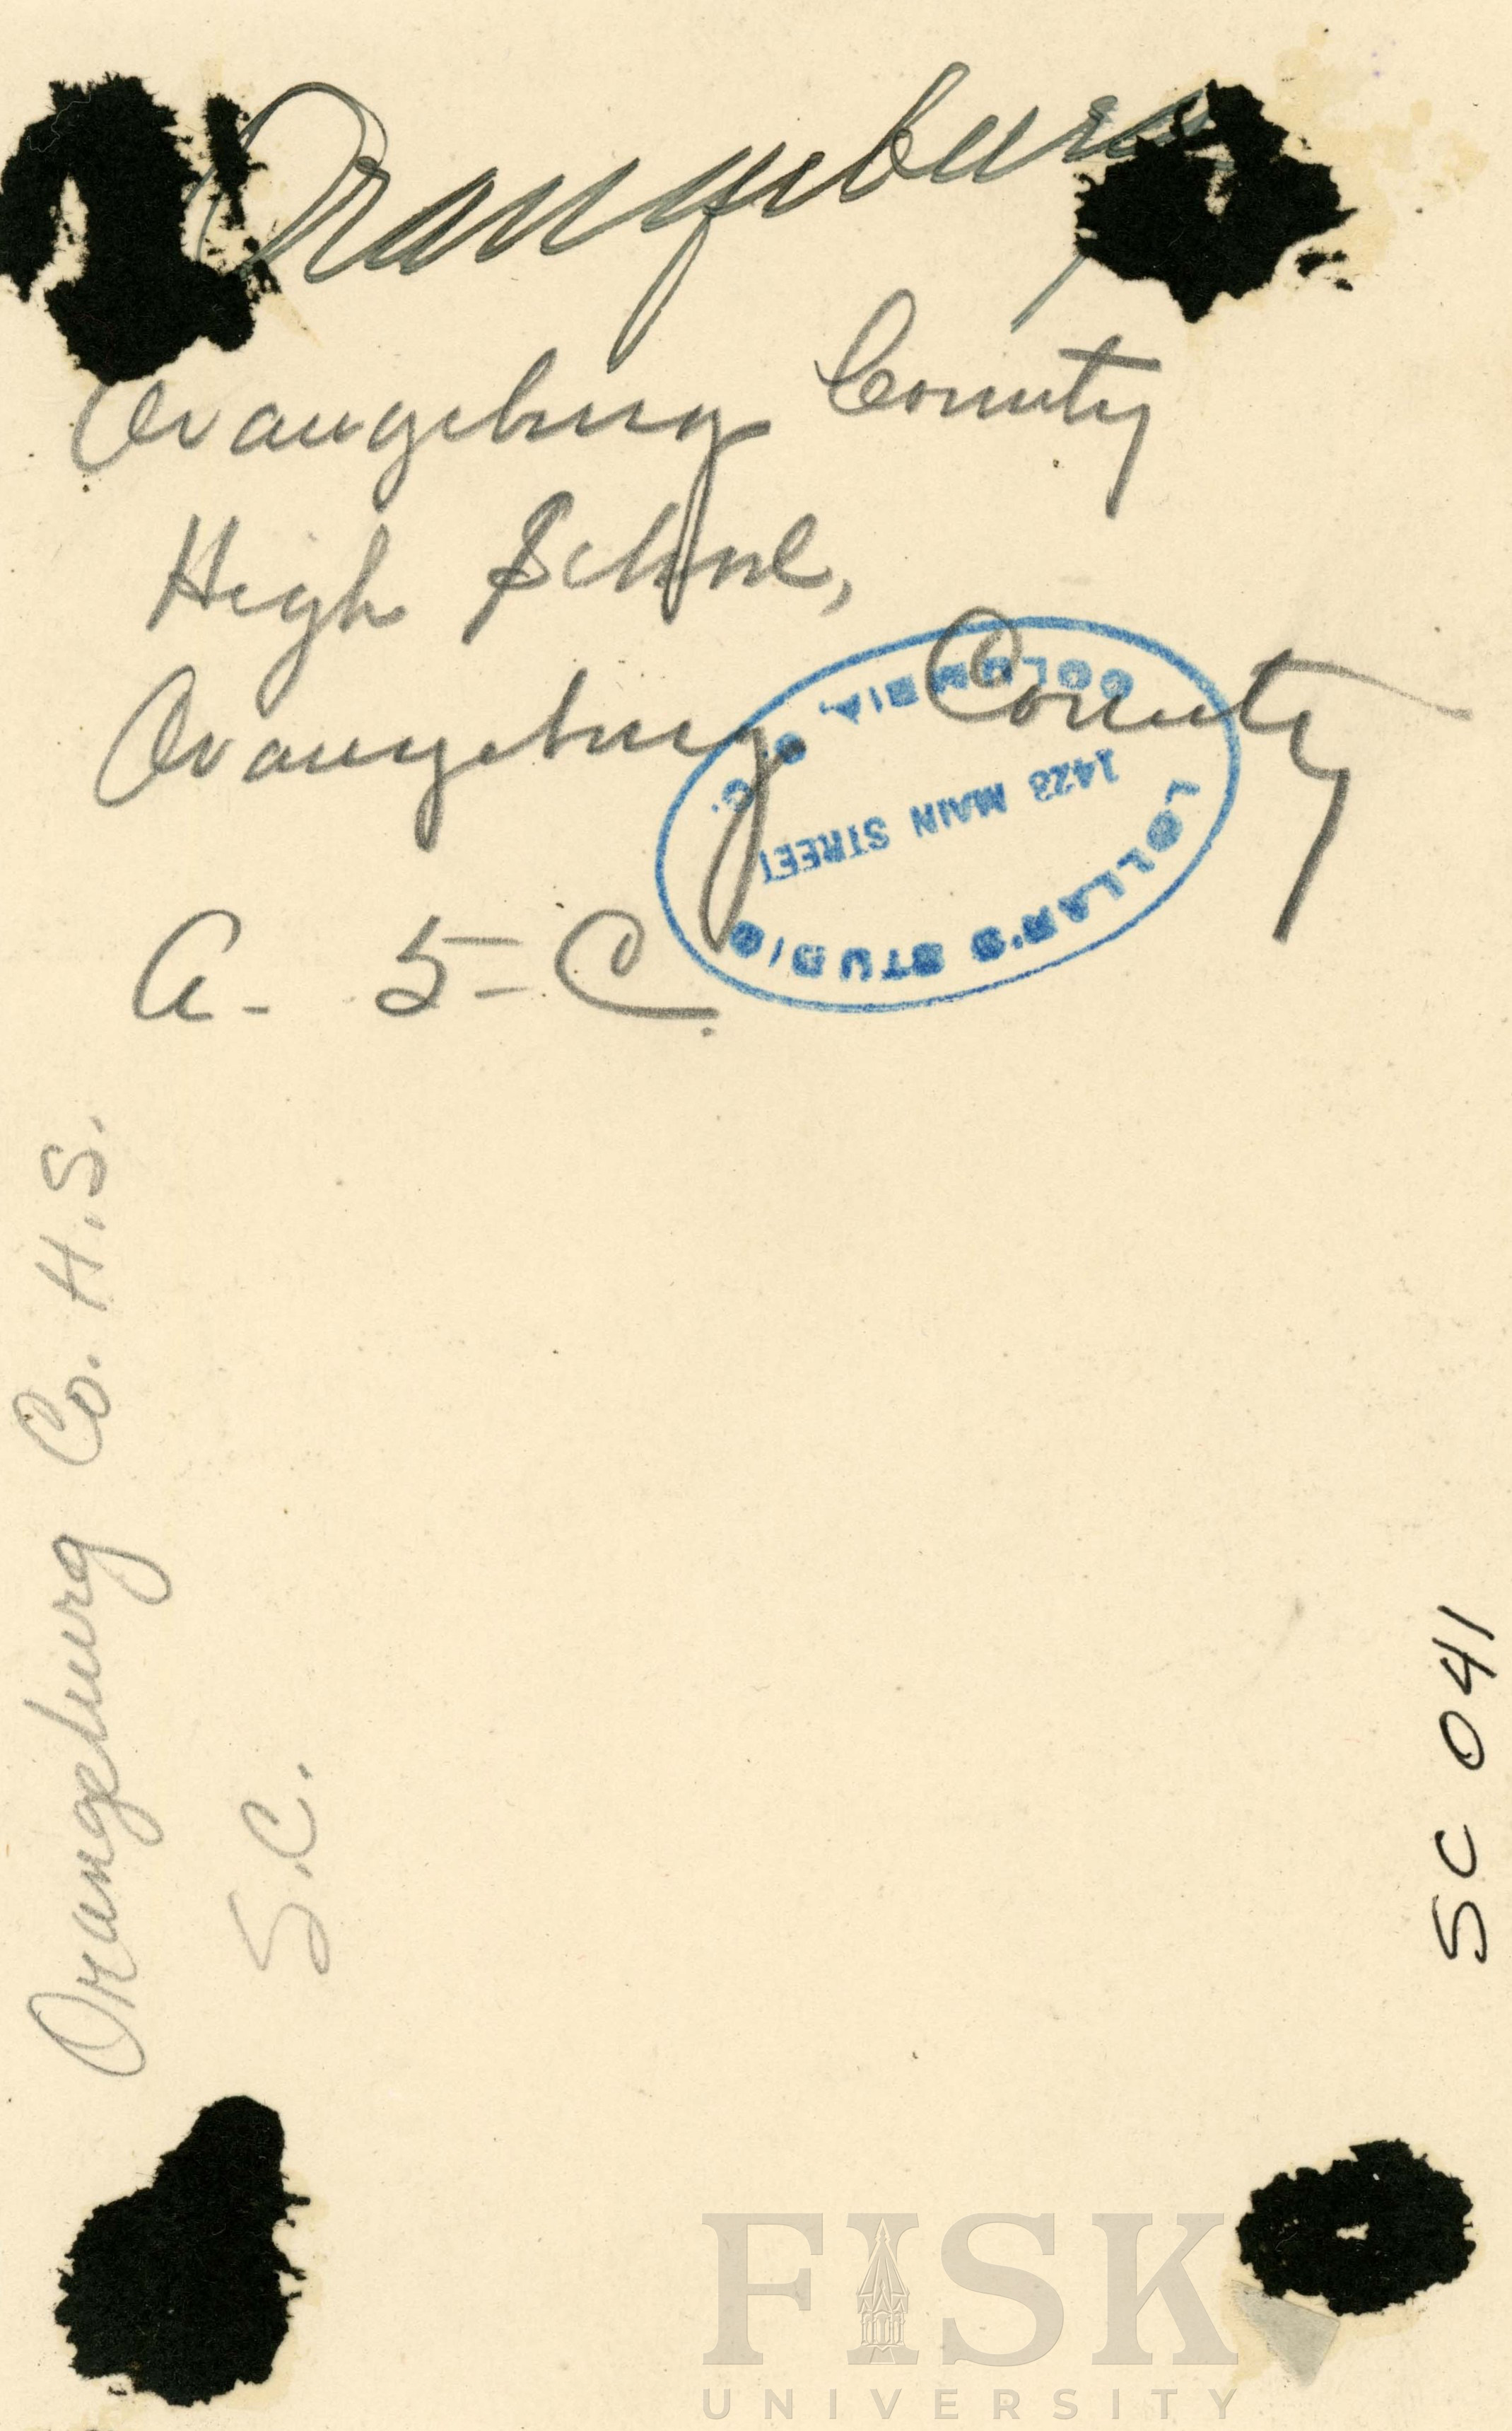 Orangeburg
Orangeburg County
High School,
Orangeburg County
A- 5-C.
LOLLAR'S STUDIO
1423 MAIN STREET
COLUMBIA, S. C.
Orangeburg Co. H.S.
S.C.
SC 041
FISK
UNIVERSITY